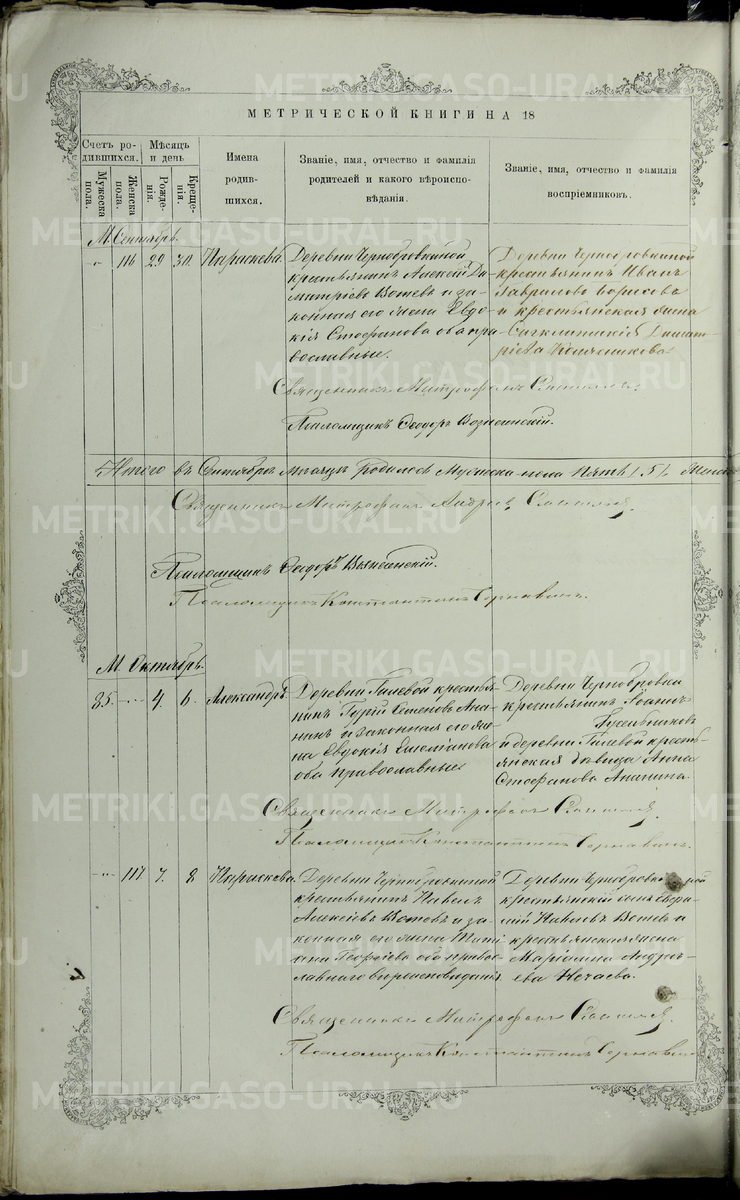 МЕТРИЧЕСКОЙ КНИГИ НА 18
Счетъ ро-
дившихся.
Мужеска
пола.
Женска
пола.
Мѣсяцъ
и день
Рожде-
нія.
Креще-
нія.
Имена
родив-
шихся.
Званіе, имя, отчество и фамилія
родителей и какого вѣроиспо-
вѣданія.
Званіе, имя, отчество и фамилія
воспріемниковъ.
М. Сентябрь.
116 29 30 Параскева
Деревни Чернобровкиной
крестьянинъ Алексѣй Ди-
митріевъ Вотевъ и за-
конная его жена Евдо-
кія Стефанова оба пра-
вославные.
Деревни Чернобровкиной
крестьянинъ Иванъ
Гавриловъ Борисовъ
и крестьянская жена
Синклитикія Димит-
ріева
Священникъ Митрофанъ
Псаломщикъ Ѳеодоръ Вознесенскій.
Итого въ Сентябрѣ мѣсяцѣ родилось мужеска пола пять /5/
Священникъ Митрофанъ Андреев
Псаломщикъ Ѳеодоръ Вознесенскій.
Псаломщикъ Константинъ
М. Октябрь.
85. 4. 6. Александръ.
Деревни Гилевой крестья-
нинъ Гурій Семеновъ Ана-
нинъ и законная его же-
на Евдокія Емельянова
оба православные
Деревни Чернобровкиной
крестьянинъ Іоаннъ
Гусельниковъ
и деревни Гилевой кресть-
янская дѣвица Анна
Стефанова Ананина.
Священникъ Митрофанъ
Псаломщикъ Константинъ
117 7. 8 Параскева.
Деревни Чернобровкиной
крестьянинъ Павелъ
Алексѣевъ Вотевъ и за-
конная его жена Тати-
ана Георгіева оба право-
славнаго вѣроисповѣданія
Деревни Чернобровкиной
крестьянскій сынъ
Павловъ Вотевъ и
крестьянская жена
Маріамна Андре-
ева Нечаева.
Священникъ Митрофанъ
Псаломщикъ Константинъ
METRIKI.GASO-URAL.RU